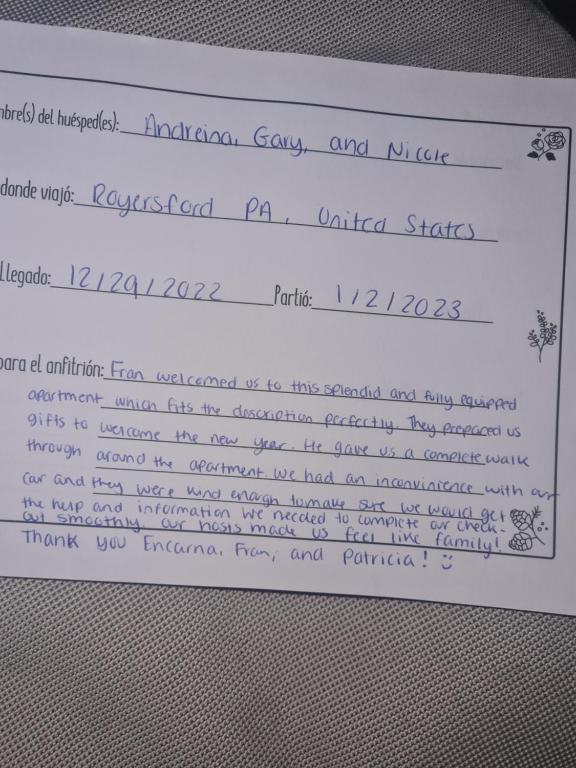 mbre(s) del huésped(es): Andreina, Gary, and Nicole
donde viajó: Royersford PA, United States
Llegado: 12/29/2022 Partió: 1/2/2023
para el anfitrión: Fran welcomed us to this splendid and fully equipped
apartment which fits the description perfectly. They prepared us
gifts to welcome the new year. He gave us a complete walk
through around the apartment. We had an inconvinience with our
car and they were kind enough to make sure we would get
the help and information we needed to complete our check-
out smoothly. Our hosts made us feel like family!
Thank you Encarna, Fran, and Patricia! :)